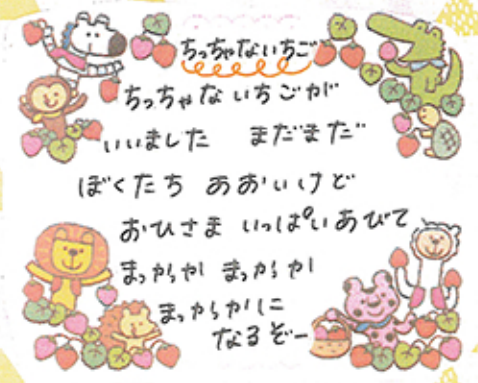 ちっちゃないちご
ちっちゃな いちごが
いいました まだまだ
ぼくたち あおいけど
おひさま いっぱい あびて
まっかっか まっかっか
まっかっかに
なるぞー